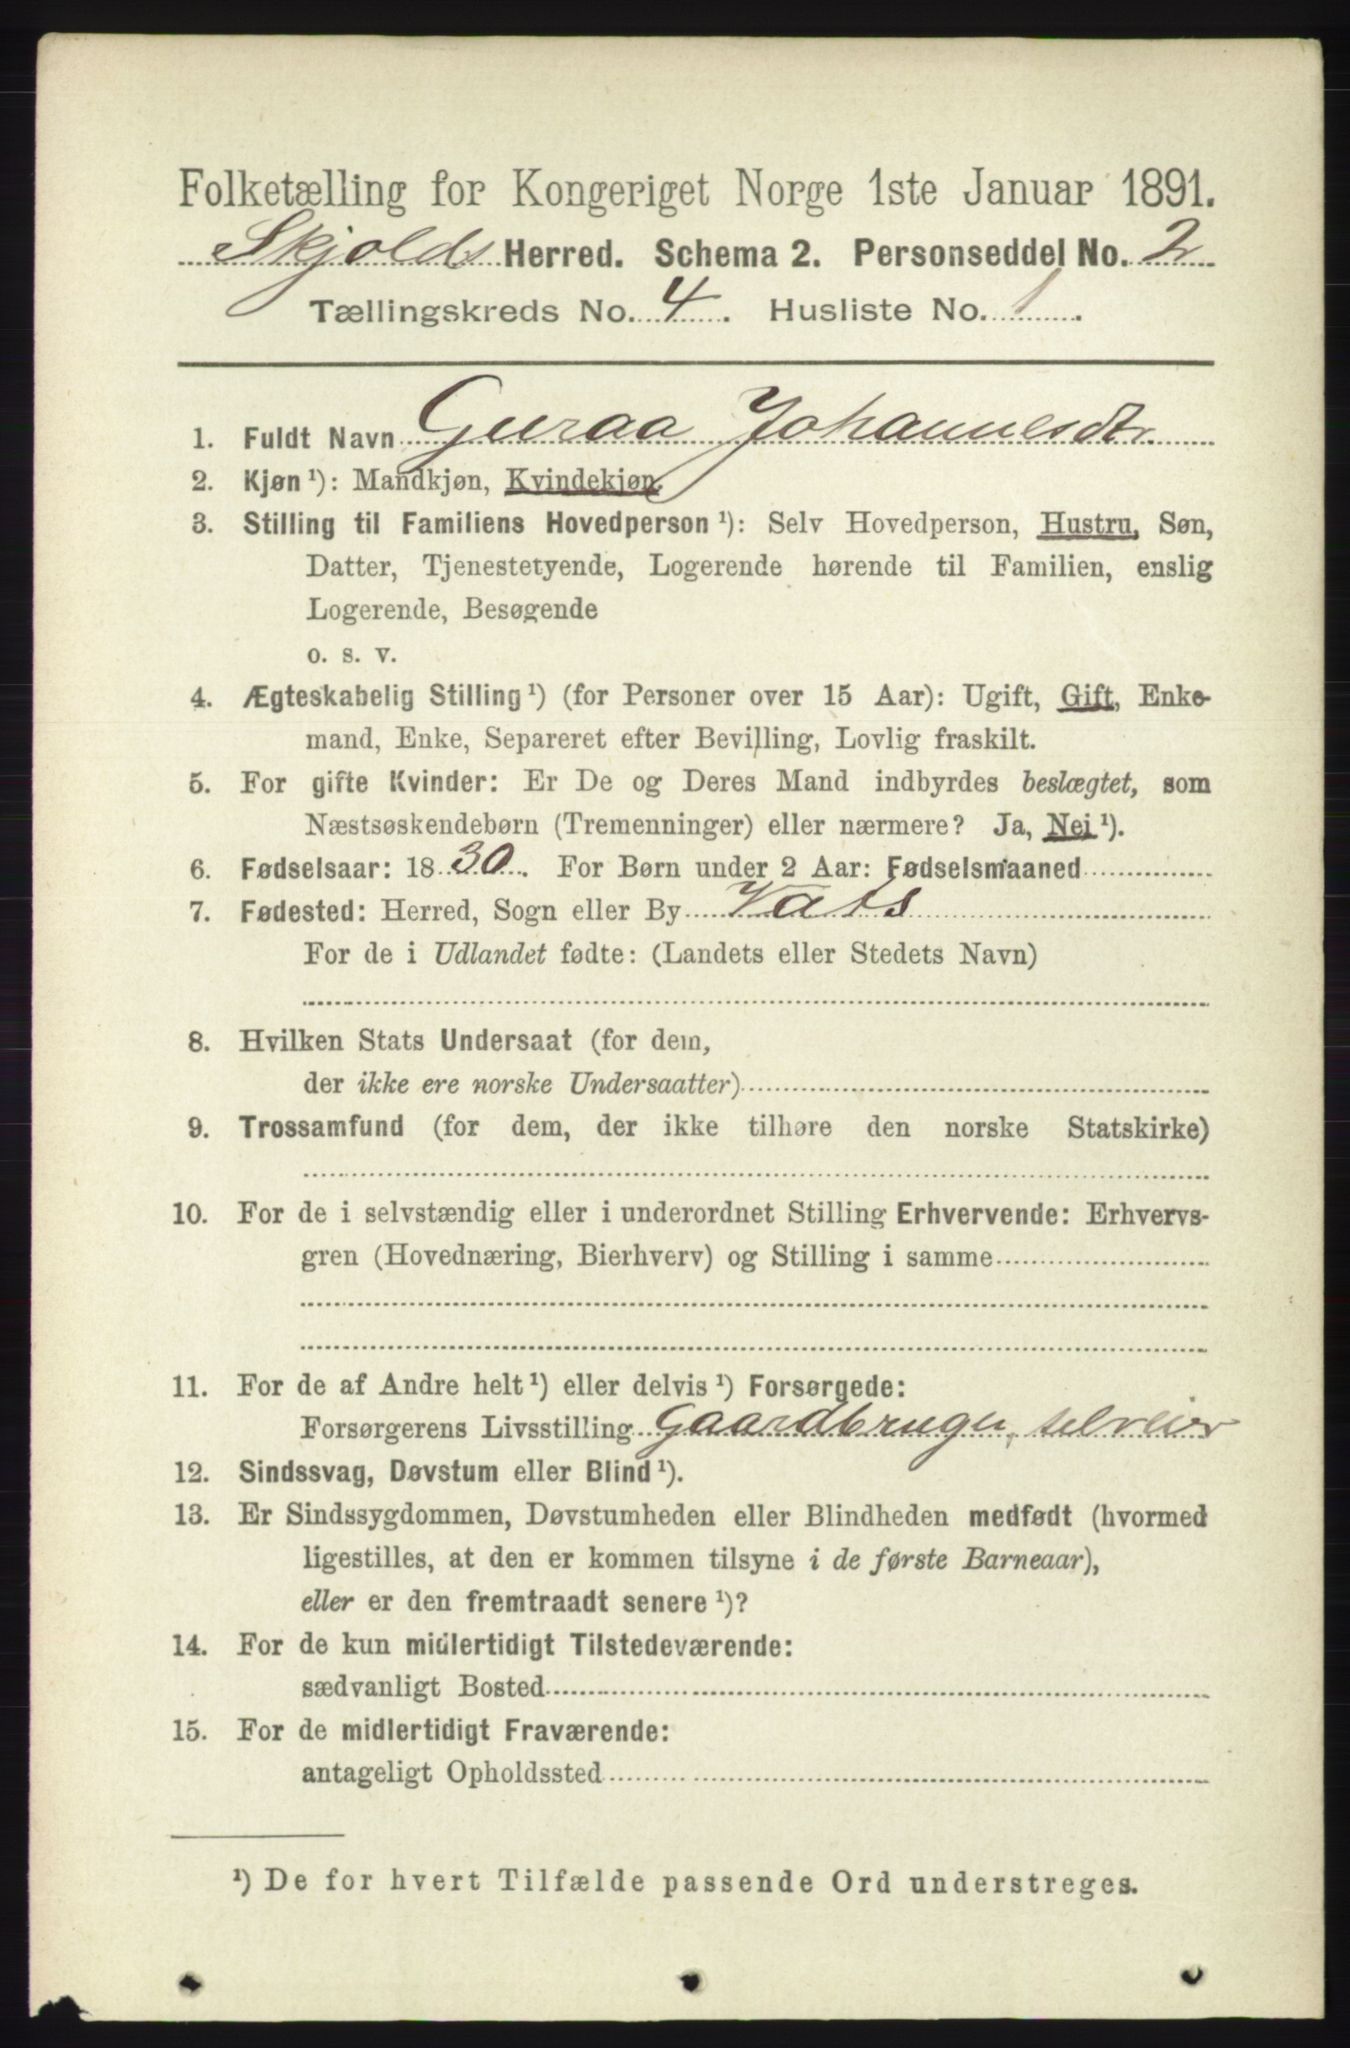 Folketælling for Kongeriget Norge 1ste Januar 1891.
Skjolds Herred. Schema 2. Personseddel No. 2
Tællingskreds No. 4. Husliste No. 1
1. Fuldt Navn Guraa Johannesdtr.
2. Kjøn ¹): Mandkjøn, Kvindekjøn.
3. Stilling til Familiens Hovedperson ¹): Selv Hovedperson, Hustru, Søn,
Datter, Tjenestetyende, Logerende hørende til Familien, enslig
Logerende, Besøgende
o. s. v.
4. Ægteskabelig Stilling ¹) (for Personer over 15 Aar): Ugift, Gift, Enke-
mand, Enke, Separeret efter Bevilling, Lovlig fraskilt.
5. For gifte Kvinder: Er De og Deres Mand indbyrdes beslægtet, som
Næstsøskendebørn (Tremenninger) eller nærmere? Ja, Nei ¹).
6. Fødselsaar: 1830. For Børn under 2 Aar: Fødselsmaaned
7. Fødested: Herred, Sogn eller By Vats
For de i Udlandet fødte: (Landets eller Stedets Navn)
8. Hvilken Stats Undersaat (for dem,
der ikke ere norske Undersaatter)
9. Trossamfund (for dem, der ikke tilhøre den norske Statskirke)
10. For de i selvstændig eller i underordnet Stilling Erhvervende: Erhvervs-
gren (Hovednæring, Bierhverv) og Stilling i samme
11. For de af Andre helt ¹) eller delvis ¹) Forsørgede:
Forsørgerens Livsstilling Gaardbruger, selveier
12. Sindssvag, Døvstum eller Blind ¹).
13. Er Sindssygdommen, Døvstumheden eller Blindheden medfødt (hvormed
ligestilles, at den er kommen tilsyne i de første Barneaar),
eller er den fremtraadt senere ¹)?
14. For de kun midlertidigt Tilstedeværende:
sædvanligt Bosted
15. For de midlertidigt Fraværende:
antageligt Opholdssted
¹) De for hvert Tilfælde passende Ord understreges.